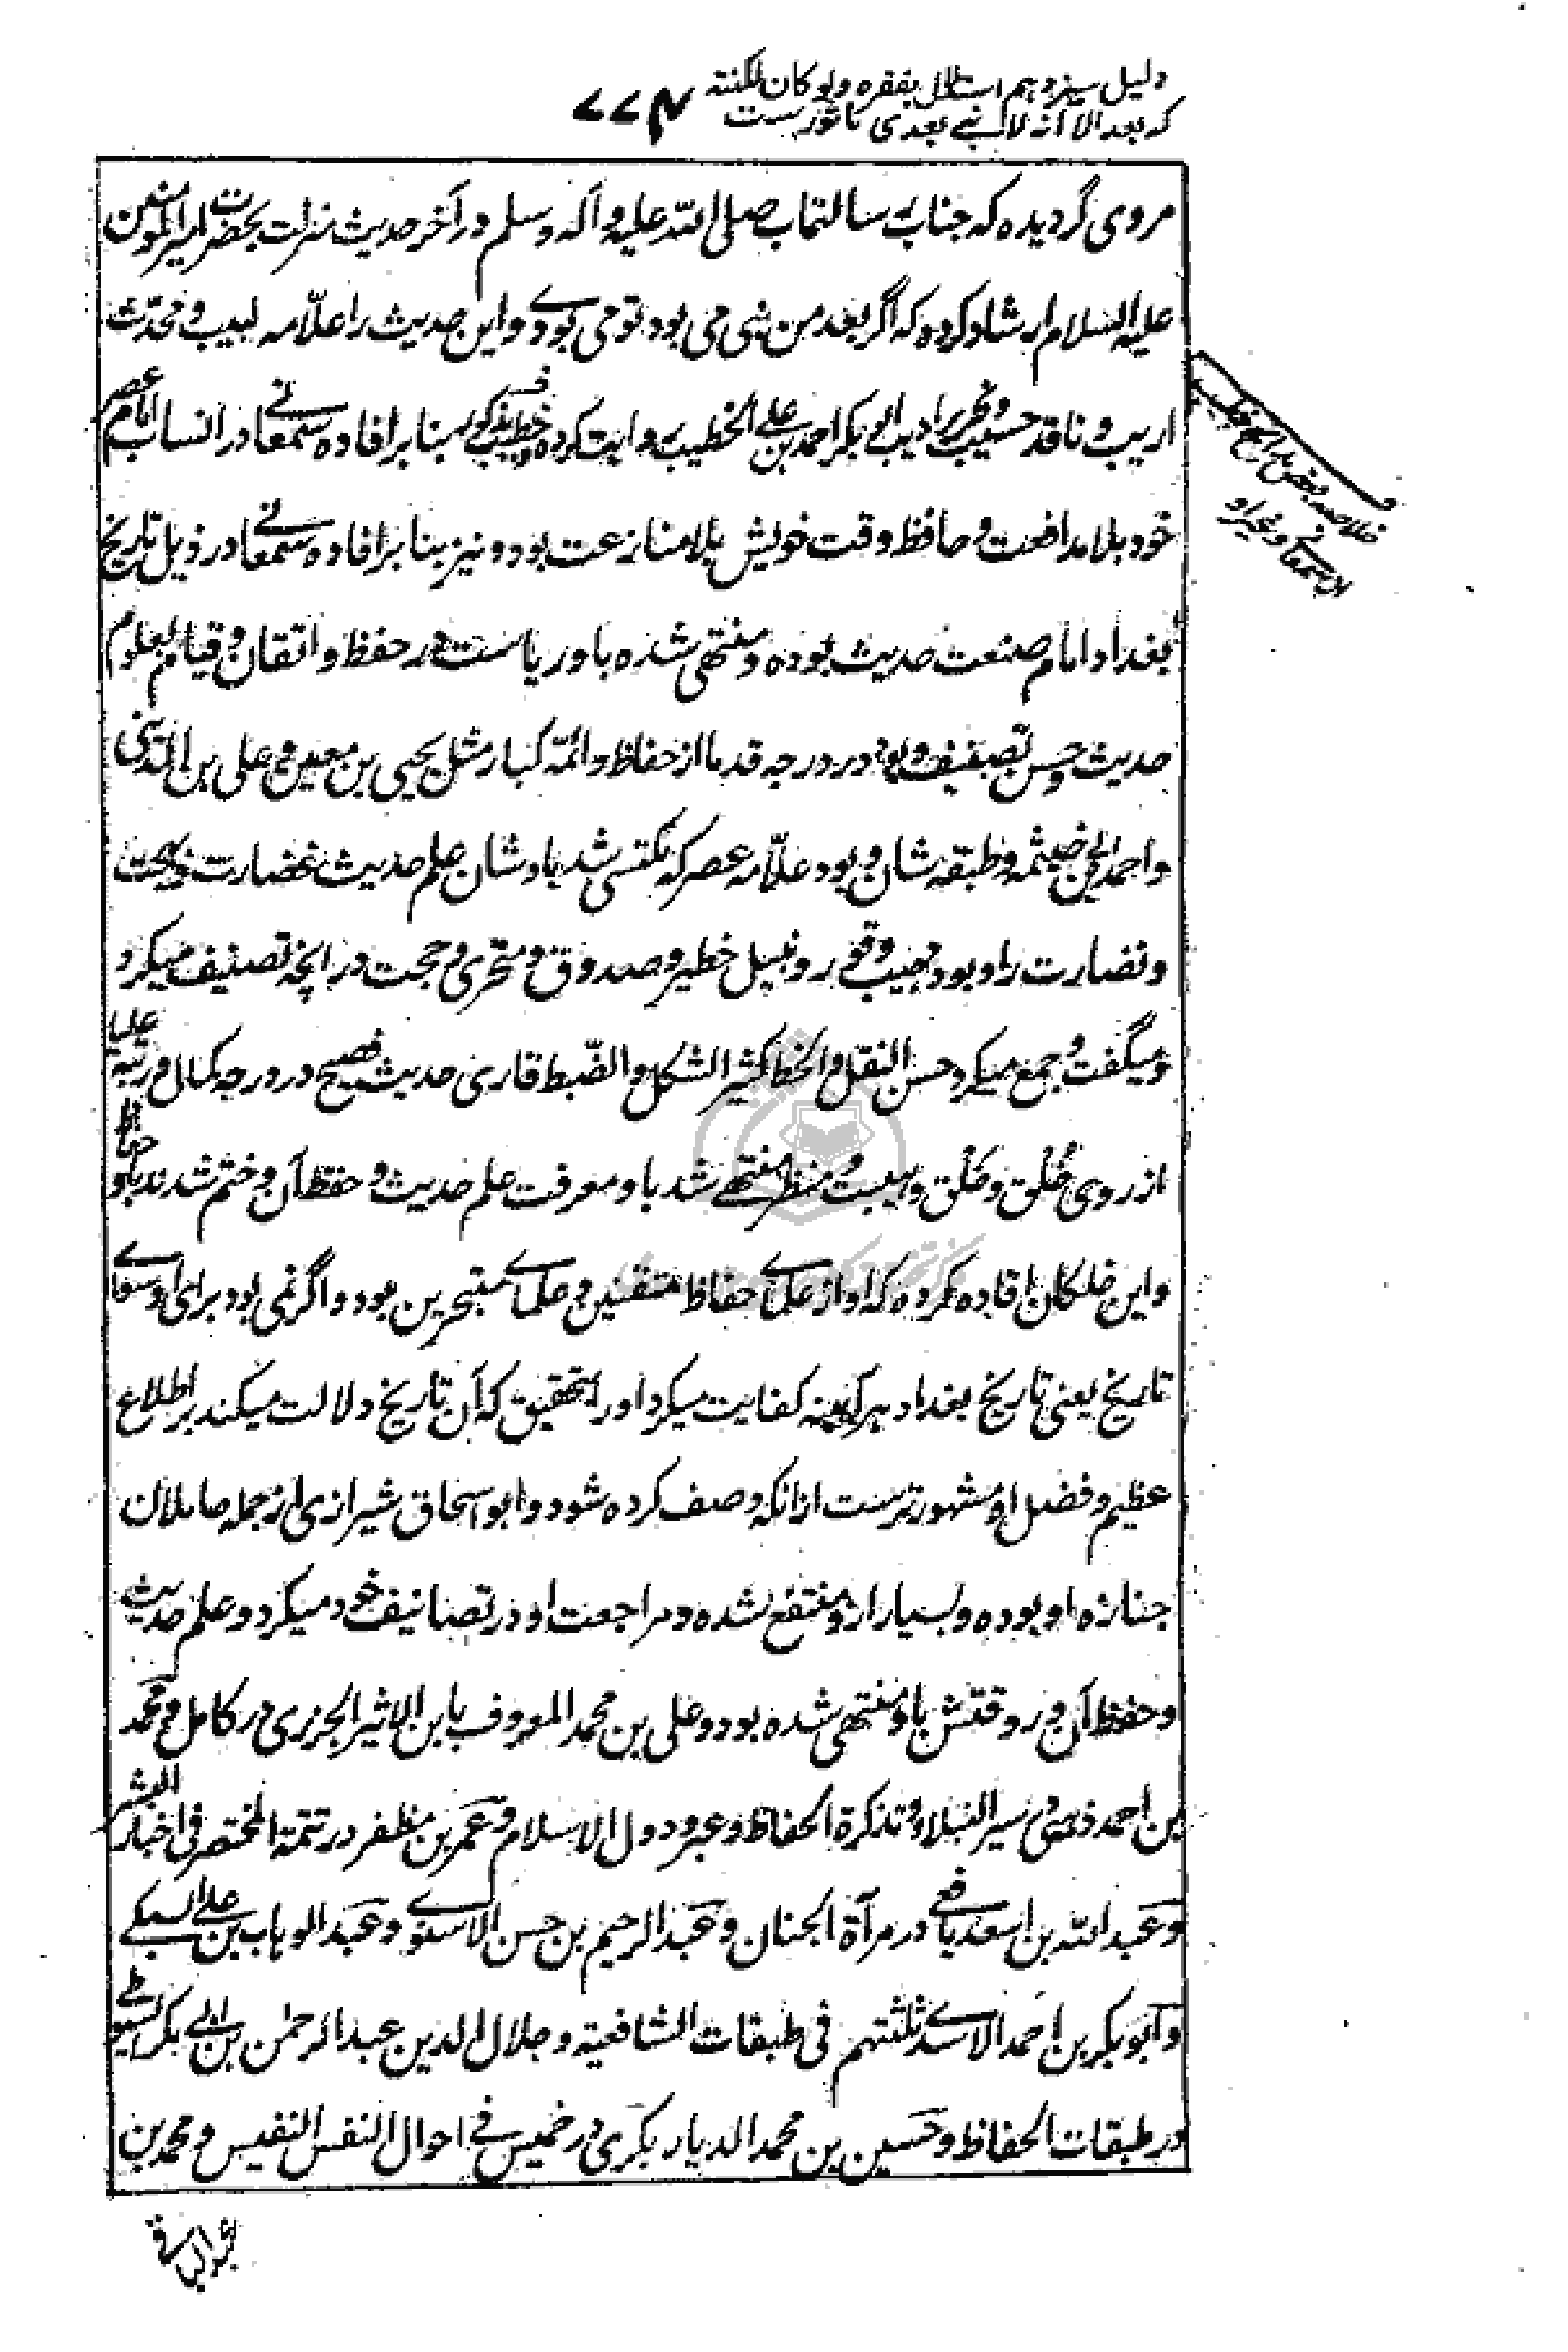 دلیل سیزدهم استدلال بفقره ولو کان لکنته
که بعد الا انه لا نبی بعدی ماثورست
۷۷۴
مروی گردیده که جناب رسالتمآب صلی الله علیه وآله وسلم در آخر حدیث منزلت بحضرت امیرالمومنین
علیه السلام ارشاد کرده که اگر بعد من نبی می بود تو می بودی و این حدیث را علّامه لبیب و محدّث
اریب و ناقد حسیب و نحریر ادیب ابی بکر احمد بن علی الخطیب روایت کرده و خطیب مذکور بنا بر افاده سمعانی در انساب امام عصر
خود بلا مدافعت و حافظ وقت خویش بلا منازعت بود و نیز بنا بر افاده سمعانی در ذیل تاریخ
بغداد امام صنعت حدیث بوده و منتهی شده باو ریاست در حفظ و اتقان و قیام بعلوم
حدیث و حسن تصنیف و بود در درجه قدما از حفاظ و ائمّه کبار مثل یحیی بن معین و علی بن المدینی
و احمد بن ابی خیثمه و طبقه شان و بود علّامه عصر که مکتسی شد باو شان علم حدیث غضارت و بهجت
و نضارت را و بود مهیب و وقور و نبیل خطیر و صدوق و متحری و حجت در آنچه تصنیف میکرد
و میگفت و جمع میکرد حسن النقل و الخط کثیر الشکل و الضّبط قاری حدیث فصیح در درجه کمال و رتبه علیا
از روی خُلق و خَلق و هیبت و منظر منتهی شد باو معرفت علم حدیث و حفظ آن و ختم شدند باو حفاظ
و ابن خلکان افاده کرده که او از علمای حفاظ متقنین و علمای متبحرین بود و اگر نمی بود برای او سوای
تاریخ یعنی تاریخ بغداد هر آئینه کفایت میکرد او را بتحقیق که آن تاریخ دلالت میکند بر اطلاع
عظیم و فضل او مشهورترست ازانکه وصف کرده شود و ابو اسحاق شیرازی از جمله حاملان
جنازه او بوده و بسیار ازو منتفع شده و مراجعت او در تصانیف خود میکرد و علم حدیث
و حفظ آن در وقتش باو منتهی شده بود و علی بن محمد المعروف بابن الاثیر الجزری در کامل و محمد
بن احمد ذهبی در سیر النبلا و تذکرة الحفاظ و عبر و دول الاسلام و عمر بن مظفر در تتمة المختصر فی اخبار البشر
و عبد الله بن اسعد یافعی در مرآة الجنان و عبد الرحیم بن حسن الاسنوی و عبد الوهاب بن علی السبکی
و ابو بکر بن احمد الاسدی ثلثتهم فی طبقات الشافعیة و جلال الدین عبد الرحمٰن بن ابی بکر السیوطی
در طبقات الحفاظ و حسین بن محمد الدیار بکری در خمیس فی احوال النفس النفیس و محمد بن
خلاصه بعض مدایح خطیب
از سمعانی و غیر او
عبد الباقی